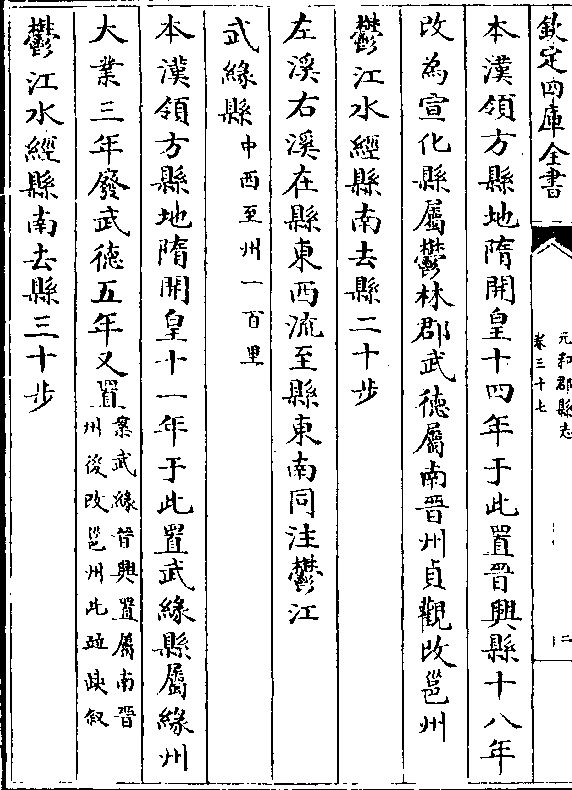 欽定四庫全書
元和郡縣志
卷三十七
二
本漢領方縣地隋開皇十四年于此置晋興縣十八年
改為宣化縣屬鬱林郡武徳屬南晋州貞觀改邕州
鬱江水經縣南去縣二十步
左溪右溪在縣東西流至縣東南同注鬱江
武緣縣中西至州一百里
本漢領方縣地隋開皇十一年于此置武緣縣屬緣州
大業三年廢武徳五年又置案武緣晋興置屬南晋
州後改邕州此並缺叙
鬱江水經縣南去縣三十步